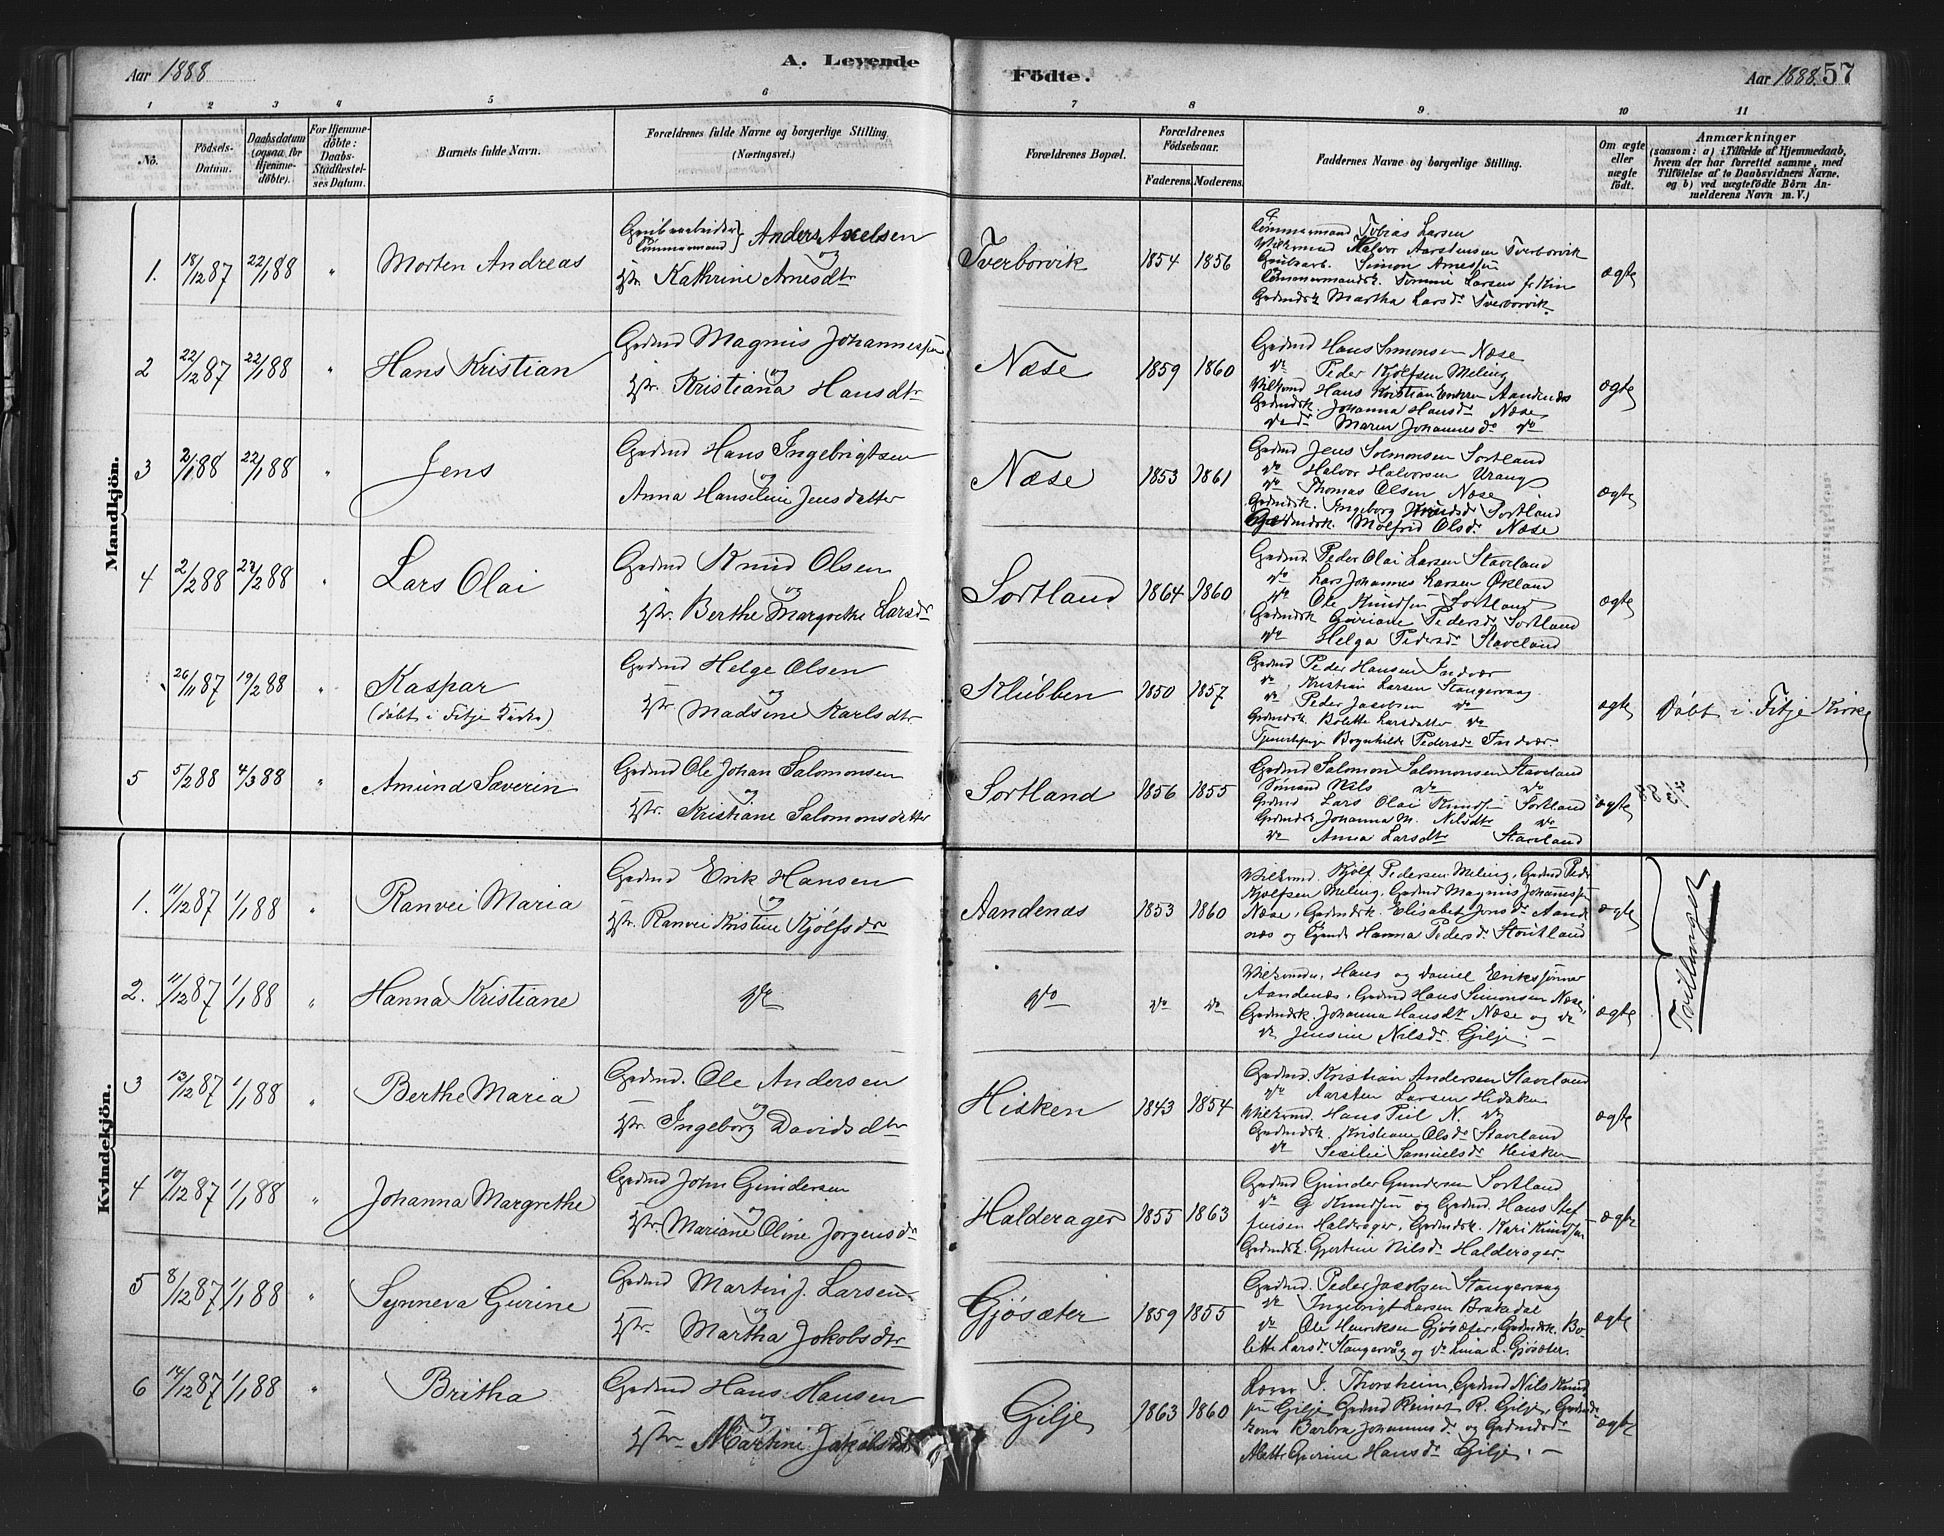 Aar 1888
A. Levende
Födte.
Aar 1888. 57
1 2 3 4 5 6 7 8 9 10 11
No.
Födsels-Datum.
Daabsdatum (ogsaa for Hjemme-döbte).
For Hjemme-döbte: Daabs-Stadfæstel-ses Datum.
Barnets fulde Navn.
Forældrenes fulde Navne og borgerlige Stilling. (Næringsvei.)
Forældrenes Bopæl.
Forældrenes Födselsaar.
Faderens. Moderens.
Faddernes Navne og borgerlige Stilling.
Om ægte eller uægte födt.
Anmærkninger
(saasom: a) i Tilfælde af Hjemmedaab,
hvem der har forrettet samme, med
Tilföielse af to Daabsvidners Navne,
og b) ved uægtefödte Börn An-
melderens Navn m. V.)
Mandkjön.
1. 18/12 87 22/1 88 " Morten Andreas
Grubearbeider Tömmermand } Anders Axelsen
og
Hstr. Kathrine Arnesdtr
Tverborvik 1854 1856
Tömmermand Tobias Larsen
Halvor Aarstensen Tverborvik
Simon Arnessön
Tömmermandsk. Tomine Larsen
Gadmdsk Martha Larsdr Tverborvik.
ægte
2 22/12 87 22/1 88 " Hans Kristian
Gadmd Magnus Johannessön
og
Hstr. Kristiana Hansdtr
Næse 1859 1860
Gadmd Hans Simonsen Næse
do Peder Kjölfsen Meling
Hans Kristian Eriksen Aandenæs
Gadmdsk. Johanna Hansdr Næse
Maren Johannesdr do
ægte
3 2/1 88 22/1 88 " Jens
Gadmd Hans Ingebrigtsen
og
Anna Hanseline Jensdatter
Næse 1853 1861
Gadmd Jens Solmonsen Sortland
do Halvor Halvorsen Urang
do Thomas Olsen Næse
Gadmdsk. Ingeborg Sortland
Gadmdsk. Molfrid Olsdr Næse
ægte
4 2/2 88 22/2 88 " Lars Olai
Gadmd Knud Olsen
og
Hstr. Berthe Margrethe Larsdr
Sortland 1864 1860
Gadmd. Peder Olai Larsen Staveland
do Lars Johannes Larsen Økland
do Ole Knudsön Sortland
Gadmdsk Göriane Pedersdr Sortland
do Helga Pedersdr Staveland
ægte
26/11 87 19/2 88 " Kaspar
(döbt i Fitje Kirke)
Gadmd Helge Olsen
og
Hstr Madsine Karlsdtr
Klubben 1850 1857
Gadmd Peder Hansen Indvær
do Kristian Larsen Stangervaag
do Peder Jacobsen do
Gadmdsk Bolette Larsdatter do
Tjenestepige Bognhilde Pedersdr Indvær.
ægte
Döbt i Fitje Kirke
5 5/2 88 4/3 88 " Amund Severin
Gadmd Ole Johan Salomonsen
og
Hstr. Kristiane Salomonsdatter
Sortland 1856 1855
Gadmd Salomon Salomonsen Staveland
Sömand Nils do do
Gadmd Lars Olai Knudsön Sortland
Gadmdsk Johanna M. Nilsdtr do
do Anna Larsdtr Staveland
ægte
Kvindekjön.
1. 11/12 87 1/1 88 " Ranvei Maria
Gadmd Erik Hansen
og
Hstr. Ranvei Kristine Kjölfsdr
Aandenæs 1853 1860
Kjölf Pedersen Meling, Gadmd Peder
Kjölfsen Meling, Gadmd Magnus Johannssön
Næse, Gadmdsk. Elisabet Jonsdr Aande
næs og Hanna Pedersdr Stoutland
ægte
Tvillinger
2. 11/12 87 1/1 88 " Hanna Kristiane
do
do do do
Hans og Daniel Erikssönner
Aandenæs, Gadmd Hans Simonsen Næse,
Gadmdsk. Johanna Hansdtr Næse og do
do Jensine Nilsdr Gilje. –
ægte
3 13/12 87 1/1 88 " Berthe Maria
Gadmd. Ole Andersen
og
Hstr. Ingeborg Davidsdtr
Hisken 1843 1854
Gadmd. Kristian Andersen Staveland
do Aarsten Larsen Hisken
Hans Peil N. do
Gadmdsk. Kristiane Olsdr Staveland
do Sesilie Samuelsdr Heisken
ægte
4 10/12 87 1/1 88 " Johanna Margrethe
Gadmd John Gundersen
og
Hstr. Mariane Oline Jorgensdr
Halderager 1855 1863
Gadmd Gunder Gundersen Sortland
do G Knudsön og Gadmd. Hans Stef
fensen Halderager, Gadmdsk. Kari Knudsön
Gadmdsk. Gjertine Nilsdr Halderager.
ægte
5 8/12 87 1/1 88 " Synneva Gurine
Gadmd Martin J. Larsen
og
Hstr. Martha Jokobsdtr
Gjösæter 1859 1855
Gadmd. Peder Jacobsen Stangervaag
do Ingebrigt Larsen Brakedal
do Ole Henriksen Gjösæter, Gadmdsk. Bo
lette Larsdr Stangervåg og do Lina L. Gjösæter.
ægte
6 14/12 87 1/1 88 " Britha
Gadmd Hans Hansen
og
Hstr Martine Jakobsdtr
Gilje 1863 1860
Lærer J. Thorsheim, Gadmd Nils Knud
sön Gilje Gadmd Reinert R. Gilje, Gadmds
kone Barbra Johannesdr og Gadmdsdr
Mette Gurine Hansdr Gilje. –
ægte